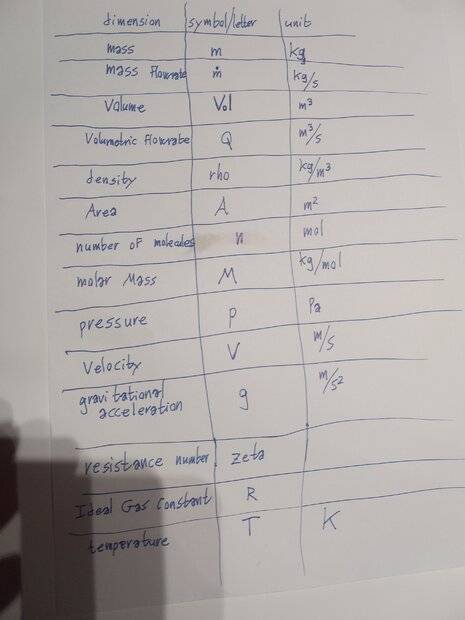 dimension symbol/letter unit
mass m kg
mass flowrate ṁ kg/s
Volume Vol m³
Volumetric flowrate Q m³/s
density rho kg/m³
Area A m²
number of molecules n mol
molar Mass M kg/mol
pressure p Pa
Velocity V m/s
gravitational
acceleration g m/s²
resistance number zeta
Ideal Gas Constant R
temperature T K